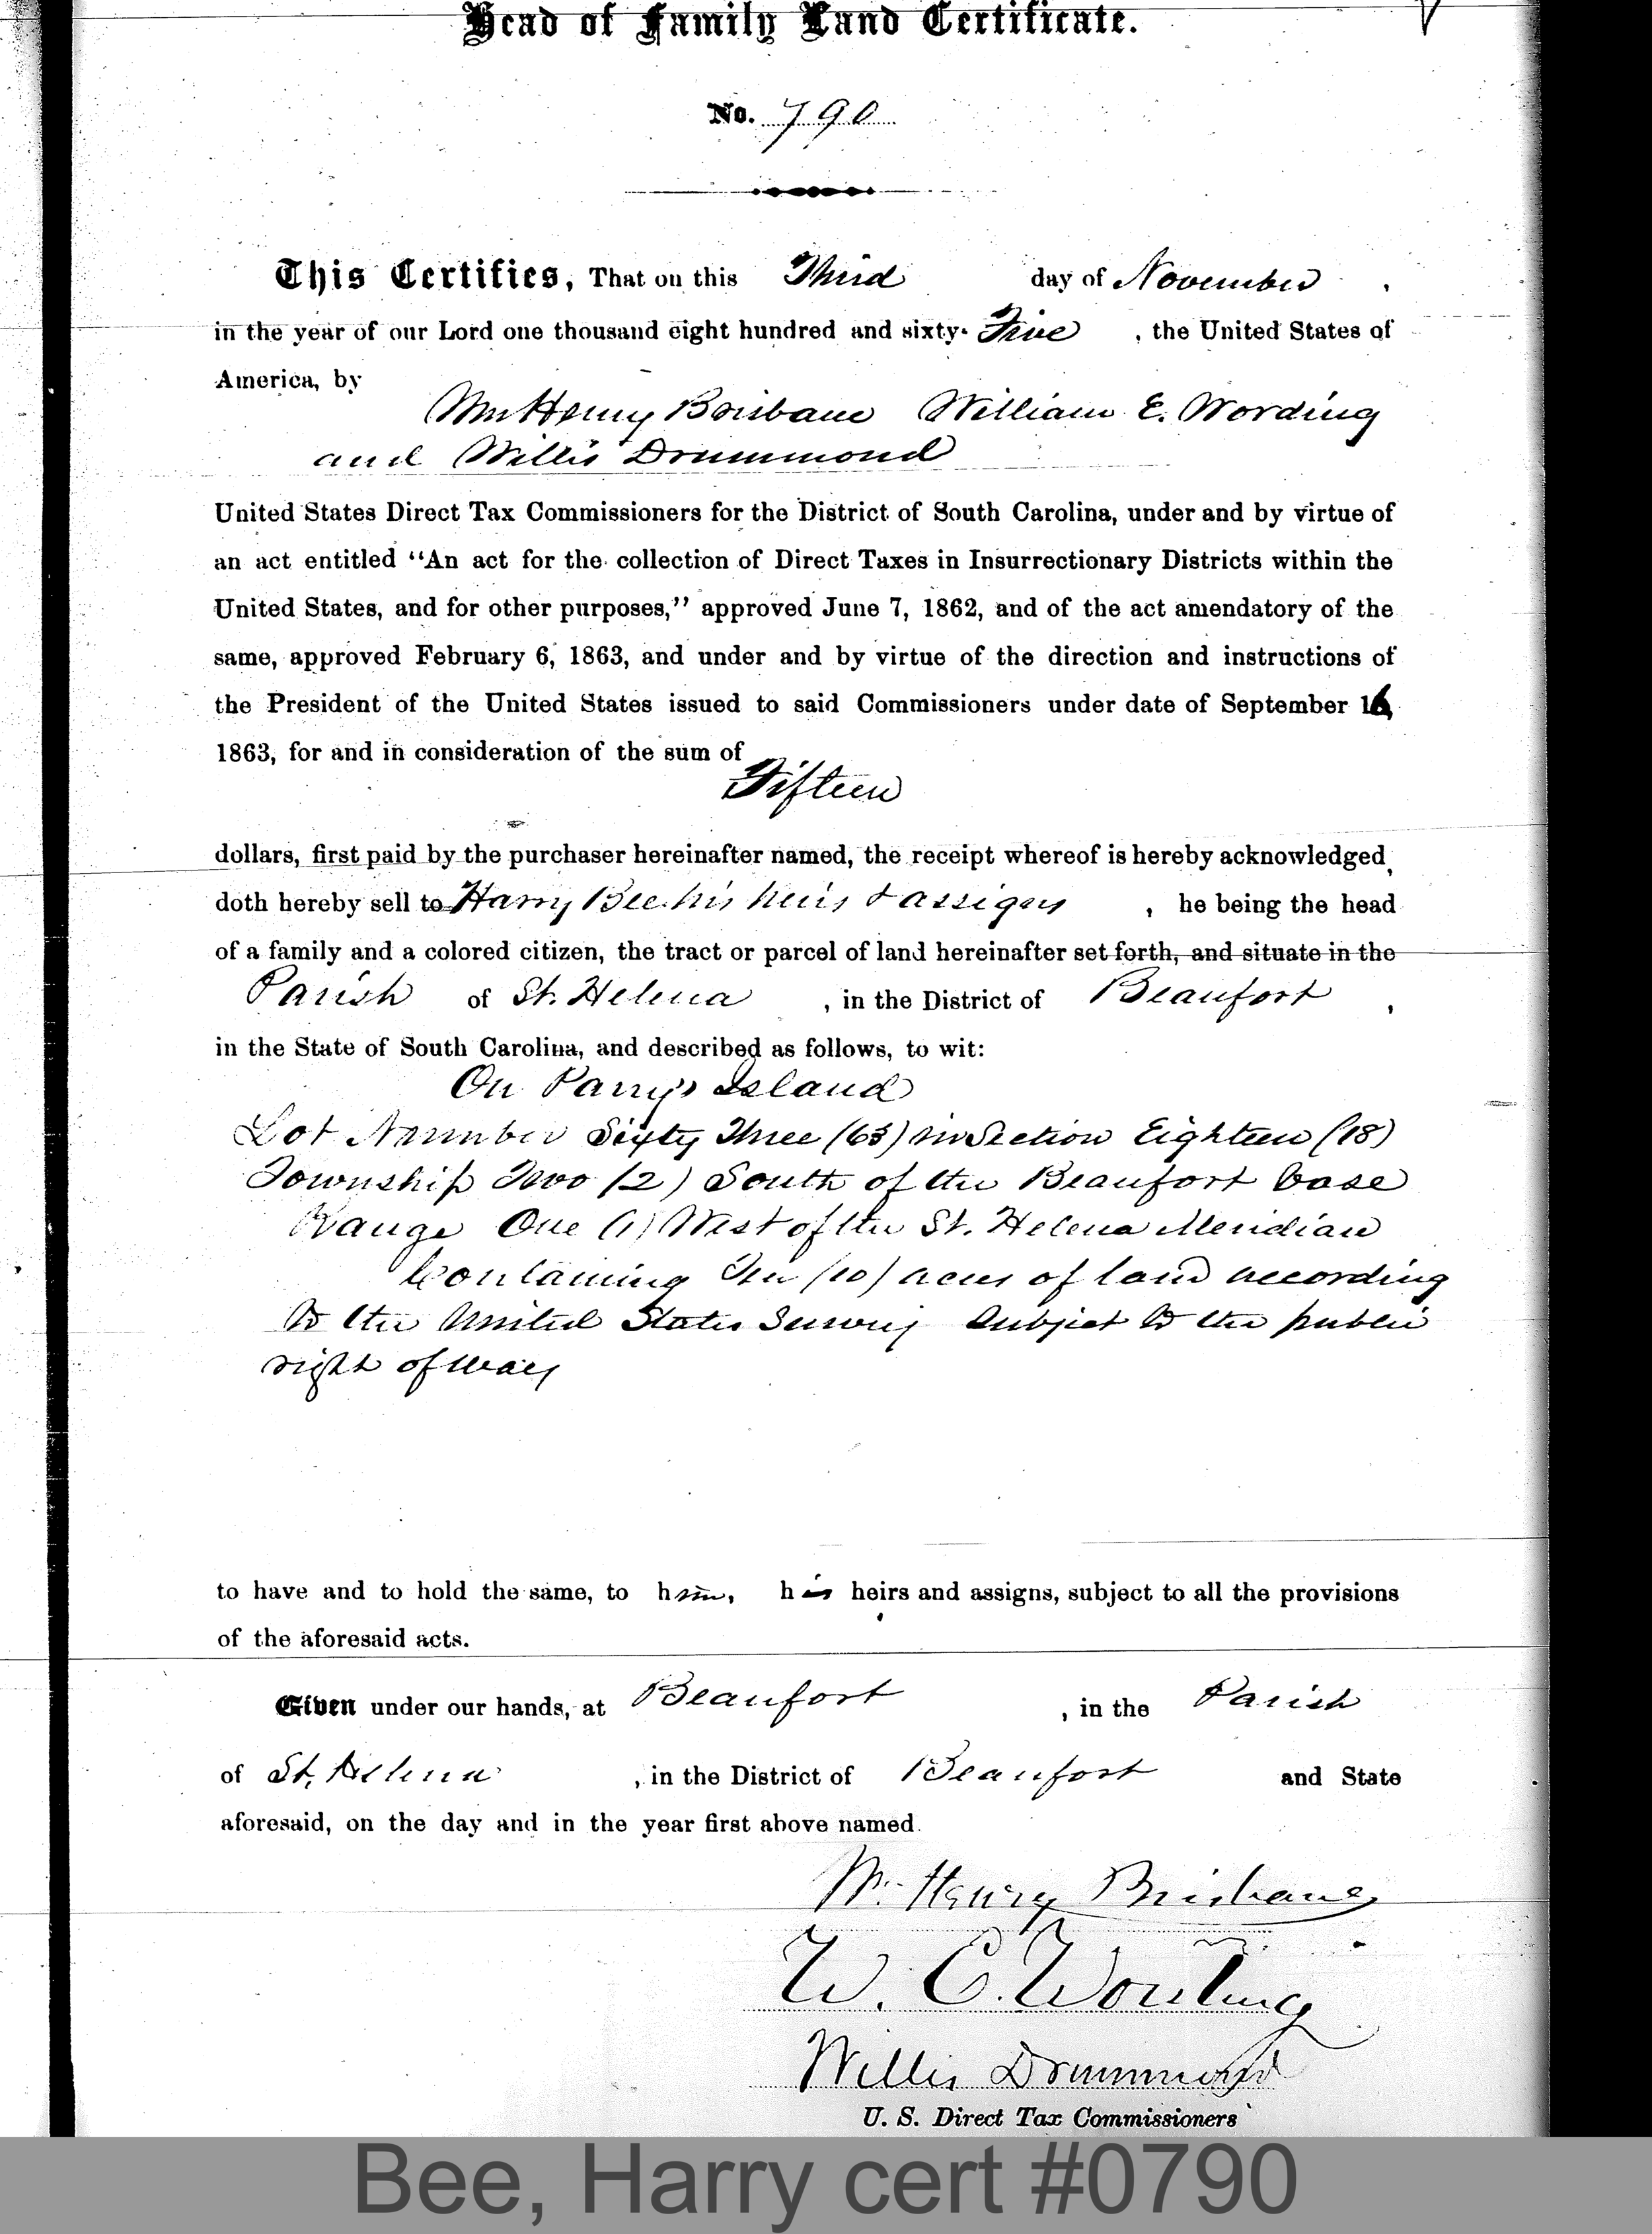 Head of Family Land Certificate.
No. 790
This Certifies, That on this Third day of November,
in the year of our Lord one thousand eight hundred and sixty-Five, the United States of
America, by
Wm Henry Brisbane William E. Wording
and Willis Drummond
United States Direct Tax Commissioners for the District of South Carolina, under and by virtue of
an act entitled “An act for the collection of Direct Taxes in Insurrectionary Districts within the
United States, and for other purposes,” approved June 7, 1862, and of the act amendatory of the
same, approved February 6, 1863, and under and by virtue of the direction and instructions of
the President of the United States issued to said Commissioners under date of September 16,
1863, for and in consideration of the sum of
Fifteen
dollars, first paid by the purchaser hereinafter named, the receipt whereof is hereby acknowledged,
doth hereby sell to Harry Bee his heirs & assigns, he being the head
of a family and a colored citizen, the tract or parcel of land hereinafter set forth, and situate in the
Parish of St. Helena, in the District of Beaufort,
in the State of South Carolina, and described as follows, to wit:
On Parry's Island
Lot Number Sixty Three (63) in Section Eighteen (18)
Township Two (2) South of the Beaufort base
Range One (1) West of the St. Helena Meridian
Containing Ten (10) acres of land according
to the United States Survey Subject to the public
right of way
to have and to hold the same, to him, his heirs and assigns, subject to all the provisions
of the aforesaid acts.
Given under our hands, at Beaufort, in the Parish
of St. Helena, in the District of Beaufort and State
aforesaid, on the day and in the year first above named.
Wm. Henry Brisbane
W. E. Wording
Willis Drummond
U. S. Direct Tax Commissioners
Bee, Harry cert #0790